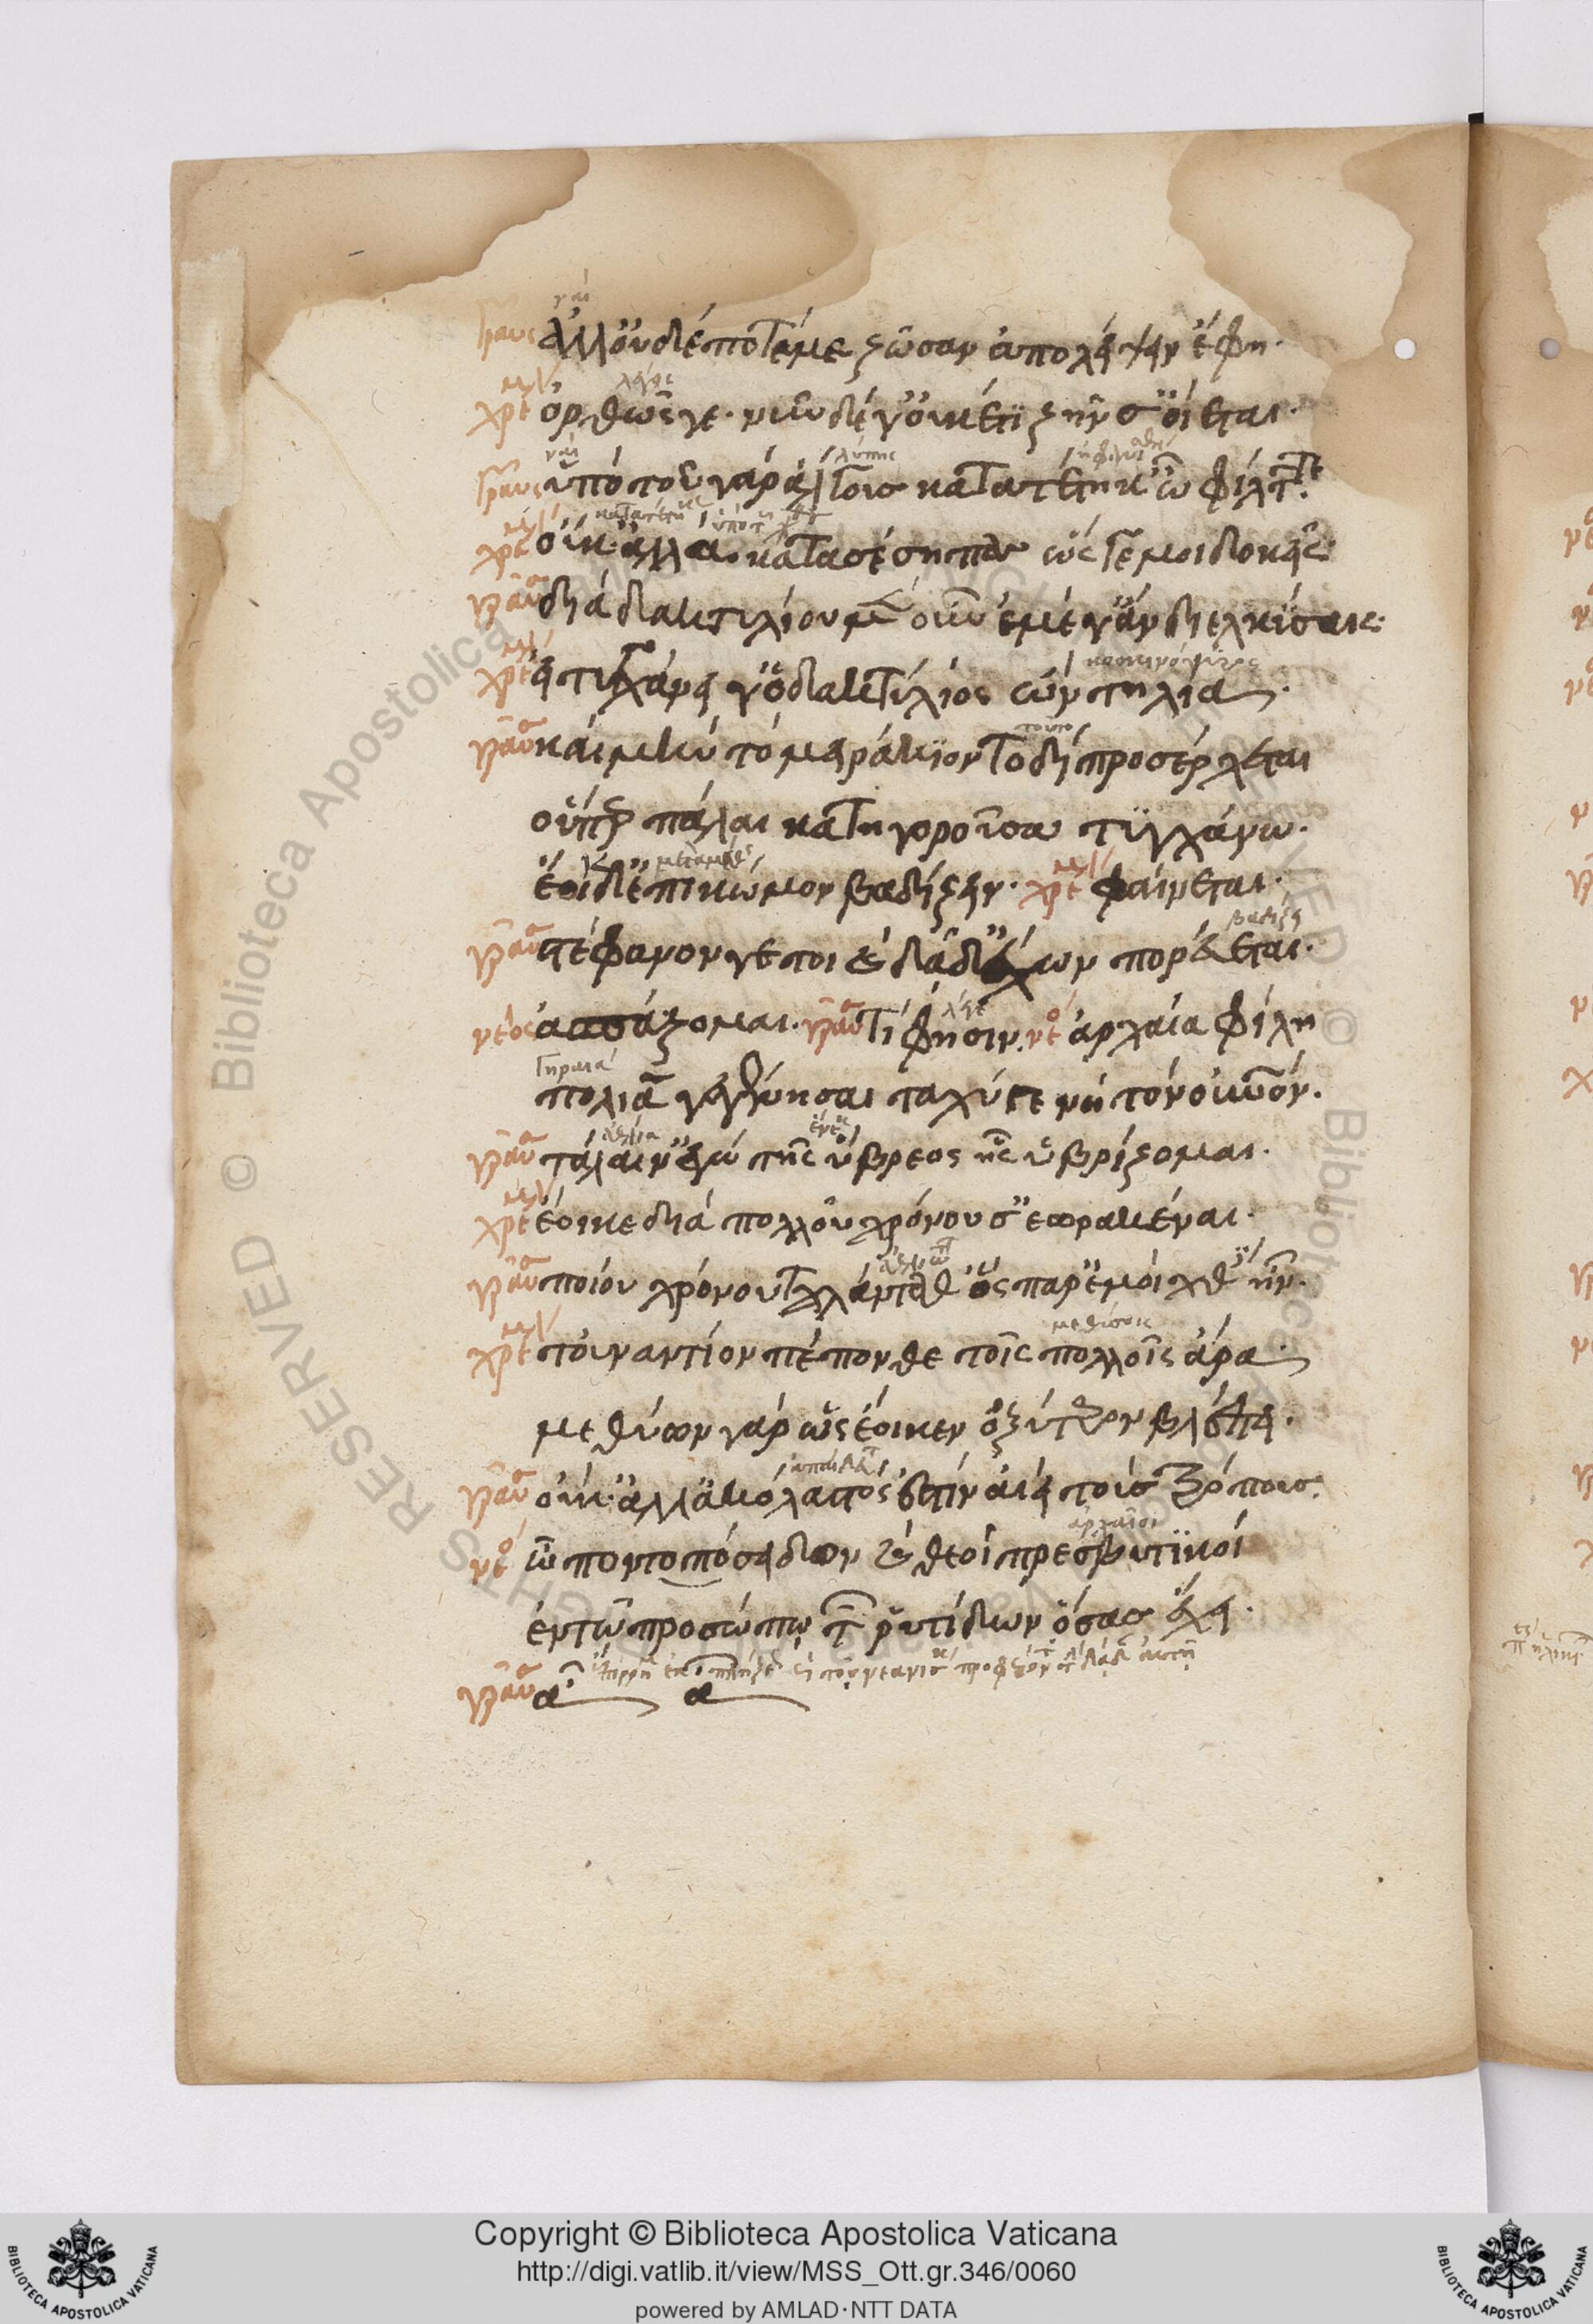 γραῦς ἀλλ' οὐδέποτέ με ζῶσαν ἀπολείψειν ἔφη.
χρε ὀρθῶς γε· νῦν δέ γ' οὐκέτι ζῆν σ' οἴεται.
γραῦς ὑπὸ τοῦ γὰρ ἄλγους κατατέτηκ' ὦ φίλτατε.
χρε οὐκ· ἀλλὰ κατασέσηπας ὥς γ' ἐμοὶ δοκεῖς·
γραῦ διὰ δακτυλίου μὲν οὖν ἐμέ γ' ἂν διελκύσαις·
χρε εἰ τυγχάνει γ' ὁ δακτύλιος ὢν τηλία.
γραῦ καὶ μὴν τὸ μειράκιον τοδὶ προσέρχεται
οὗπερ πάλαι κατηγοροῦσα τυγχάνω.
ἔοικε δ' ἐπὶ κῶμον βαδίζειν· χρε φαίνεται.
γραῦ στέφανον γέ τοι καὶ δᾷδ' ἔχων πορεύεται.
νέος ἀσπάζομαι. γραῦ τί φησιν. νέ ἀρχαία φίλη
πολιὰ γεγένησαι ταχύ γε νὴ τὸν οὐρανόν.
γραῦ τάλαιν' ἐγὼ τῆς ὕβρεος ἧς ὑβρίζομαι.
χρε ἔοικε διὰ πολλοῦ χρόνου σ' ἑορακέναι.
γραῦ ποίου χρόνου ταλάνταθ' ὃς παρ' ἐμοὶ χθὲς ἦν.
χρε τοὐναντίον πέπονθε τοῖς πολλοῖς ἄρα
μεθύων γὰρ ὡς ἔοικεν ὀξύτερον βλέπει.
γραῦ οὐκ· ἀλλ' ἀκόλαστός ἐστιν ἀεὶ τοῖς τρόποις.
νέ ὦ ποντοπόσειδον καὶ θεοὶ πρεσβυτικοί
ἐν τῷ προσώπῳ τῶν ῥυτίδων ὅσας ἔχει.
γραῦ ἆ ἆ
Copyright © Biblioteca Apostolica Vaticana
http://digi.vatlib.it/view/MSS_Ott.gr.346/0060
powered by AMLAD·NTT DATA